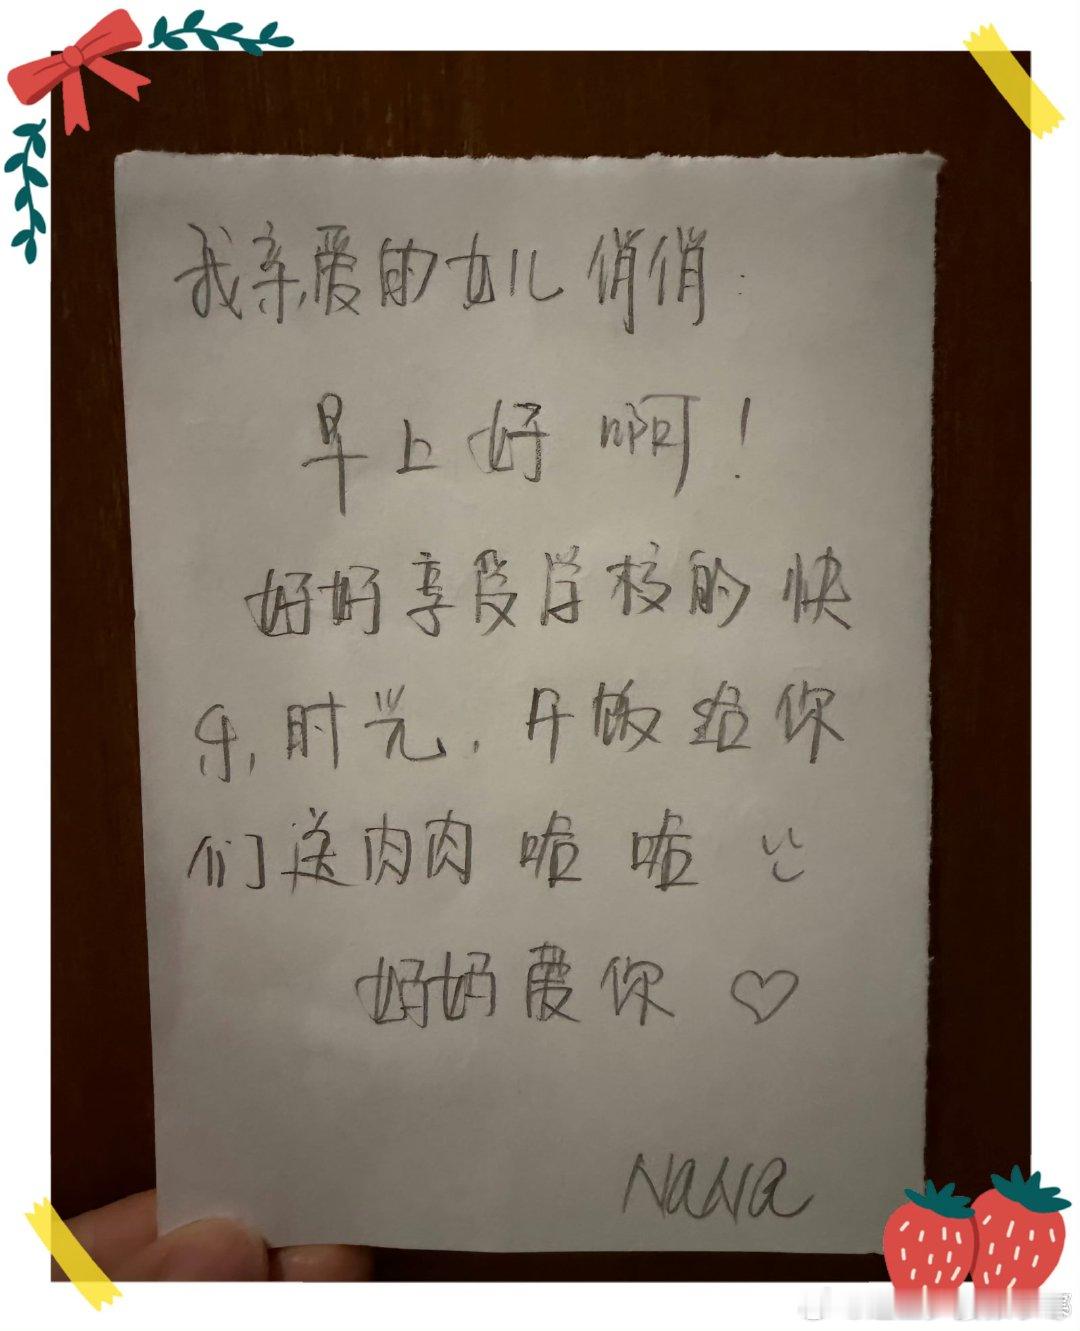 我亲爱的女儿俏俏:
早上好 啊！
好好享受学校的快
乐时光，开饭给你
们送肉肉啦啦
妈妈爱你 ♡
NaNa